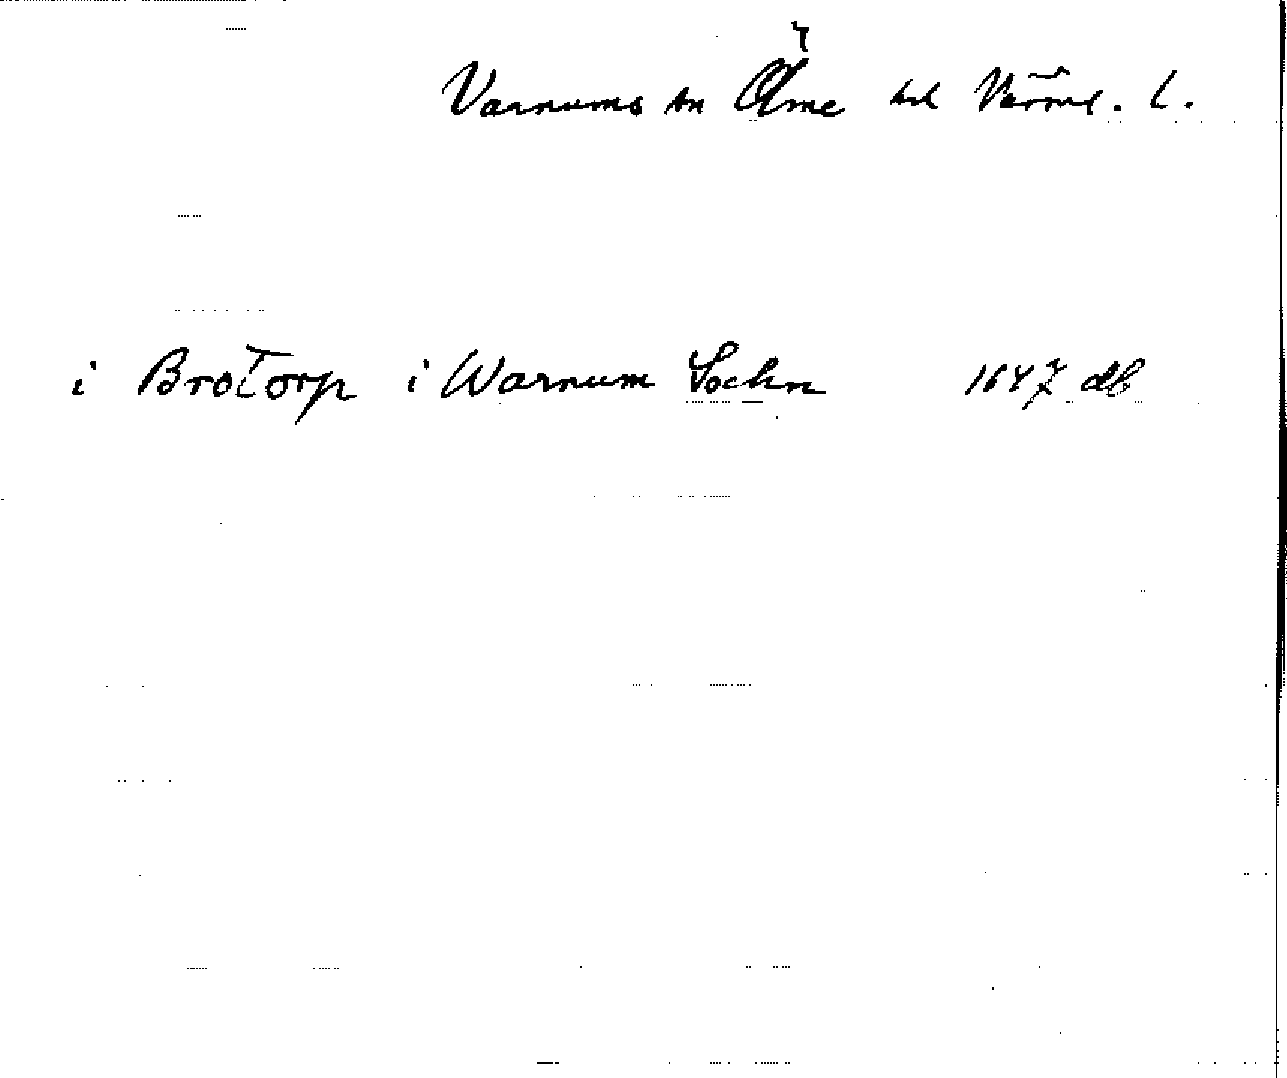 Varnums sn Ölme hd Värml. l.
i Brotorp i Warnum Sochn 1647 db